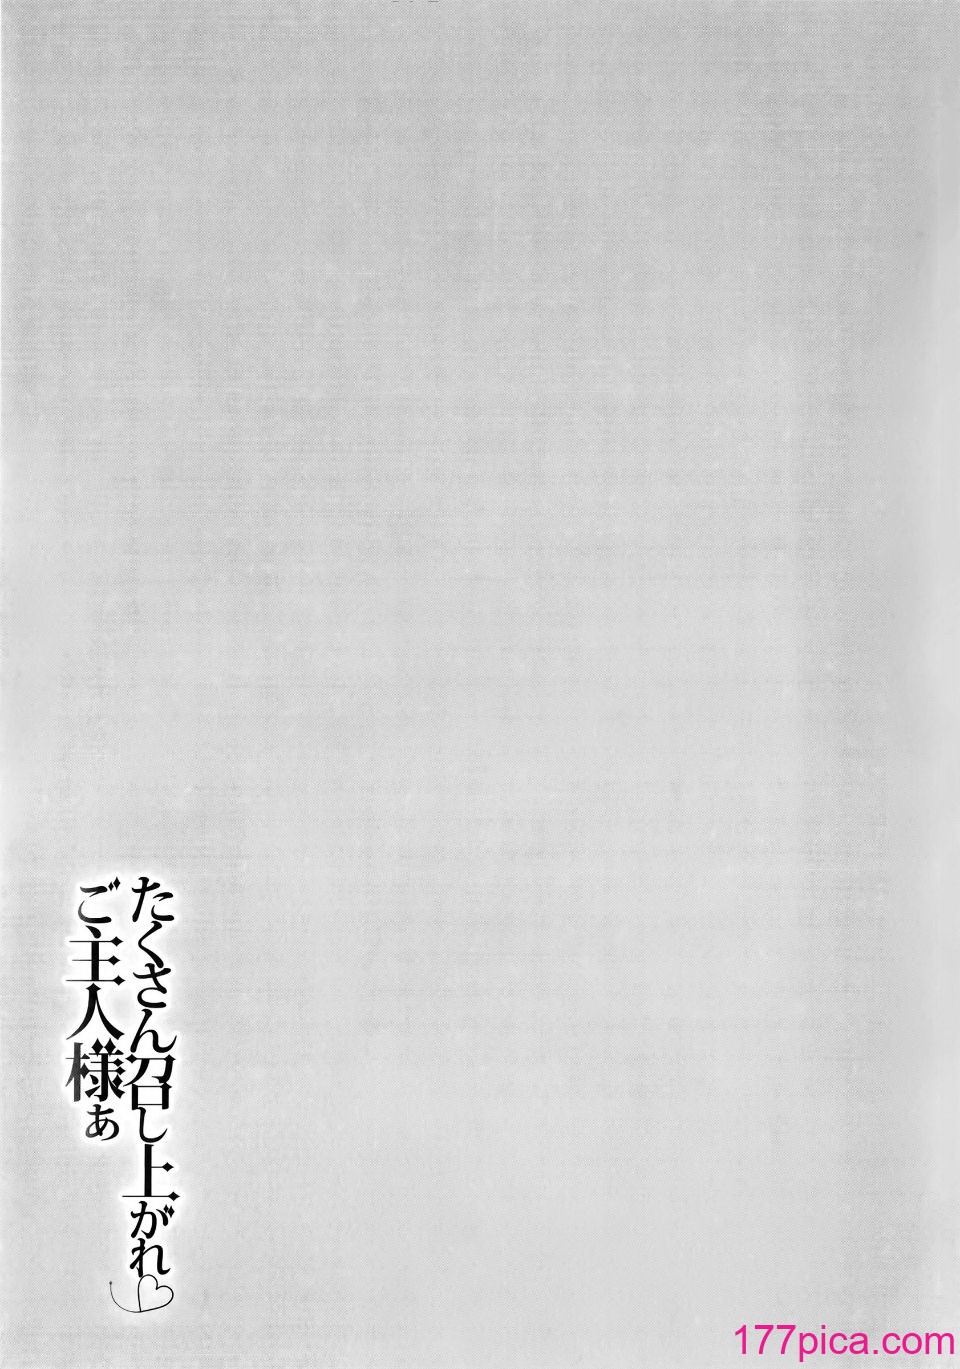 たくさん召し上がれ♡
ご主人様ぁ
177pica.com